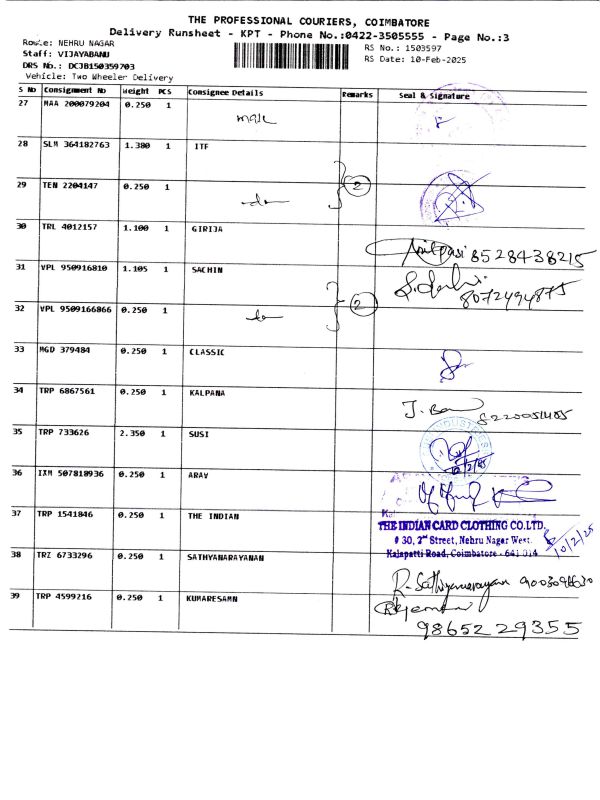 THE PROFESSIONAL COURIERS, COIMBATORE
Delivery Runsheet - KPT - Phone No.:0422-3505555 - Page No.:3
Route: NEHRU NAGAR
RS No.: 1503597
Staff: VIJAYABANU
RS Date: 10-Feb-2025
DRS No.: DCJB150359703
Vehicle: Two Wheeler Delivery
S No Consignment No Weight PCS Consignee Details Remarks Seal & Signature
27 MAA 200079204 0.250 1
28 SLM 364182763 1.380 1 ITF
29 TEN 2204147 0.250 1 2
30 TRL 4012157 1.100 1 GIRIJA 8528438215
31 VPL 950916810 1.105 1 SACHIN 8072494875
32 VPL 9509166866 0.250 1 2
33 MGD 379484 0.250 1 CLASSIC
34 TRP 6867561 0.250 1 KALPANA
35 TRP 733626 2.350 1 SUSI 10/2/25
36 IXM 507818936 0.250 1 ARAV
37 TRP 1541846 0.250 1 THE INDIAN
THE INDIAN CARD CLOTHING CO.LTD.
# 30, 2nd Street, Nehru Nagar West.
Kalapatti Road, Coimbatore - 641 014
10/2/25
38 TRZ 6733296 0.250 1 SATHYANARAYANAN R. Sathiyanarayanan
39 TRP 4599216 0.250 1 KUMARESAMN
9865229355